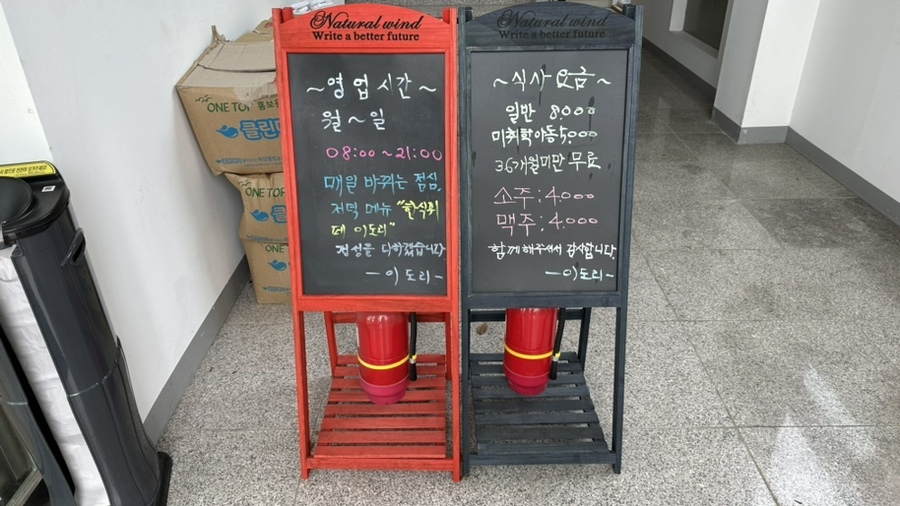 Natural wind
Write a better future
~영업시간~
월~일
08:00~21:00
매일 바뀌는 점심,
저녁 메뉴 "한식뷔
페 이도리"
정성을 다하겠습니다
-이도리-
Natural wind
Write a better future
~식사 요금~
일반 8,000
미취학아동 5,000
36개월미만 무료
소주:4,000
맥주:4,000
함께 해주셔서 감사합니다.
-이도리-
ONE TOP 홍보용
클린
ONE TOP
ONE TOP